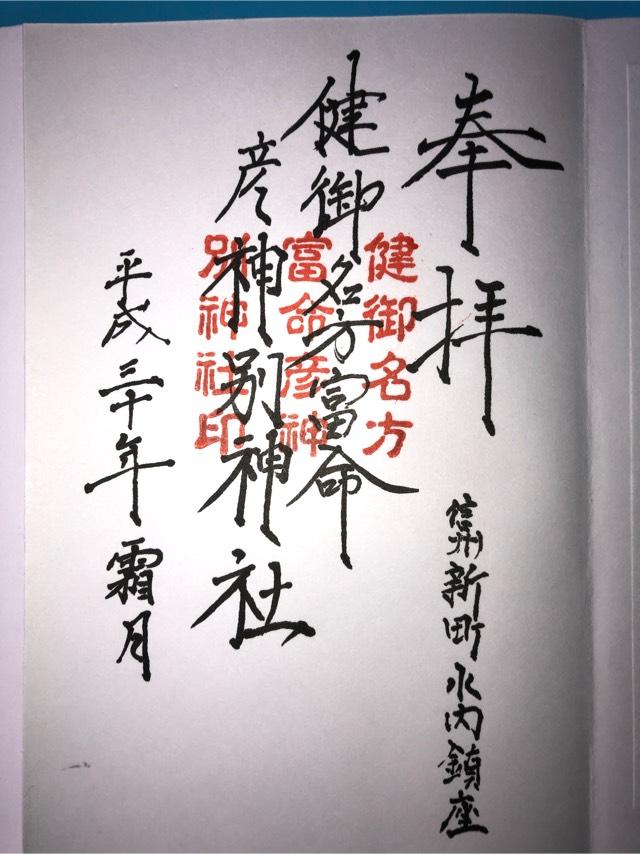 奉拝
信州新町水内鎮座
健御名方富命
彦神別神社
平成三十年霜月
健御名方
富命彦神
別神社印